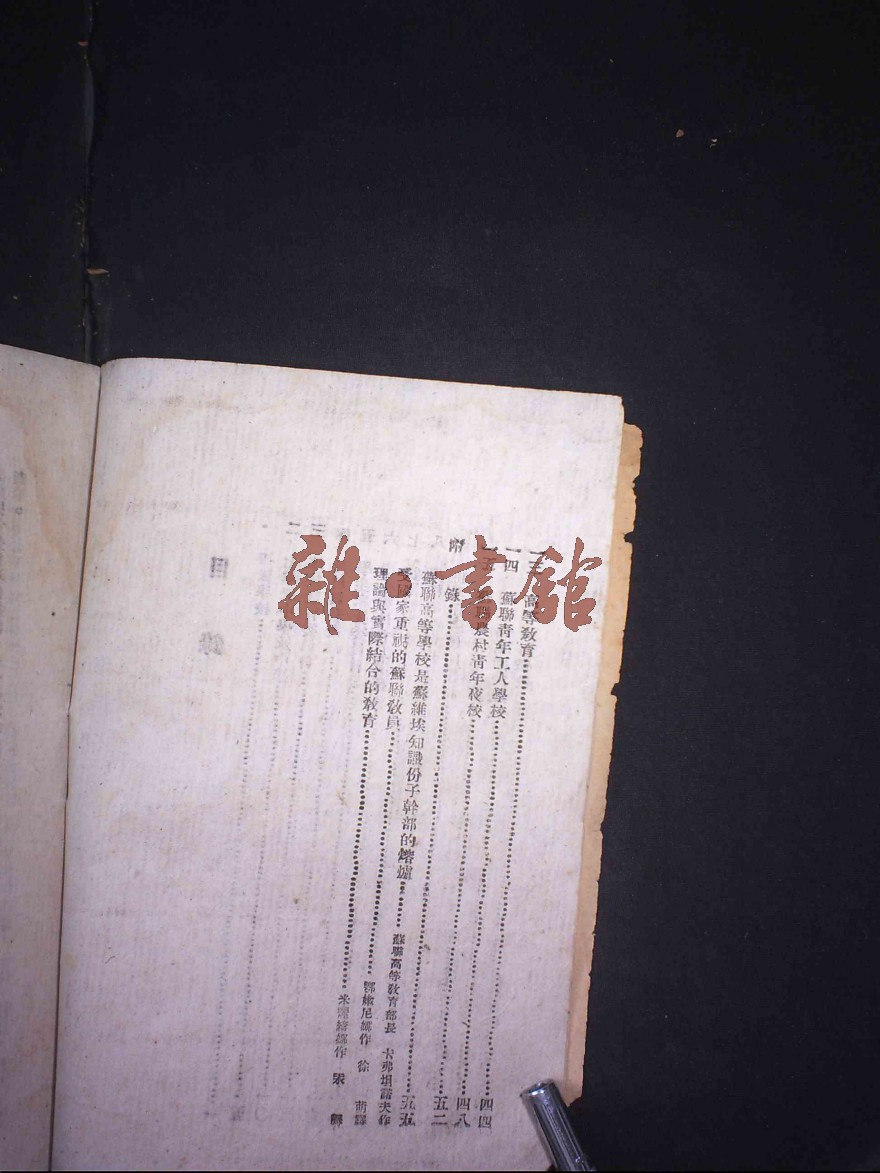 高等教育
一四 蘇聯青年工人學校 四四
農村青年夜校 四八
附錄 五二
蘇聯高等學校是蘇維埃知識份子幹部的熔爐 蘇聯高等教育部長 卡弗坦諾夫作 五五
國家重視的蘇聯教員 徐 萌譯
理論與實際結合的教育
雜·書館